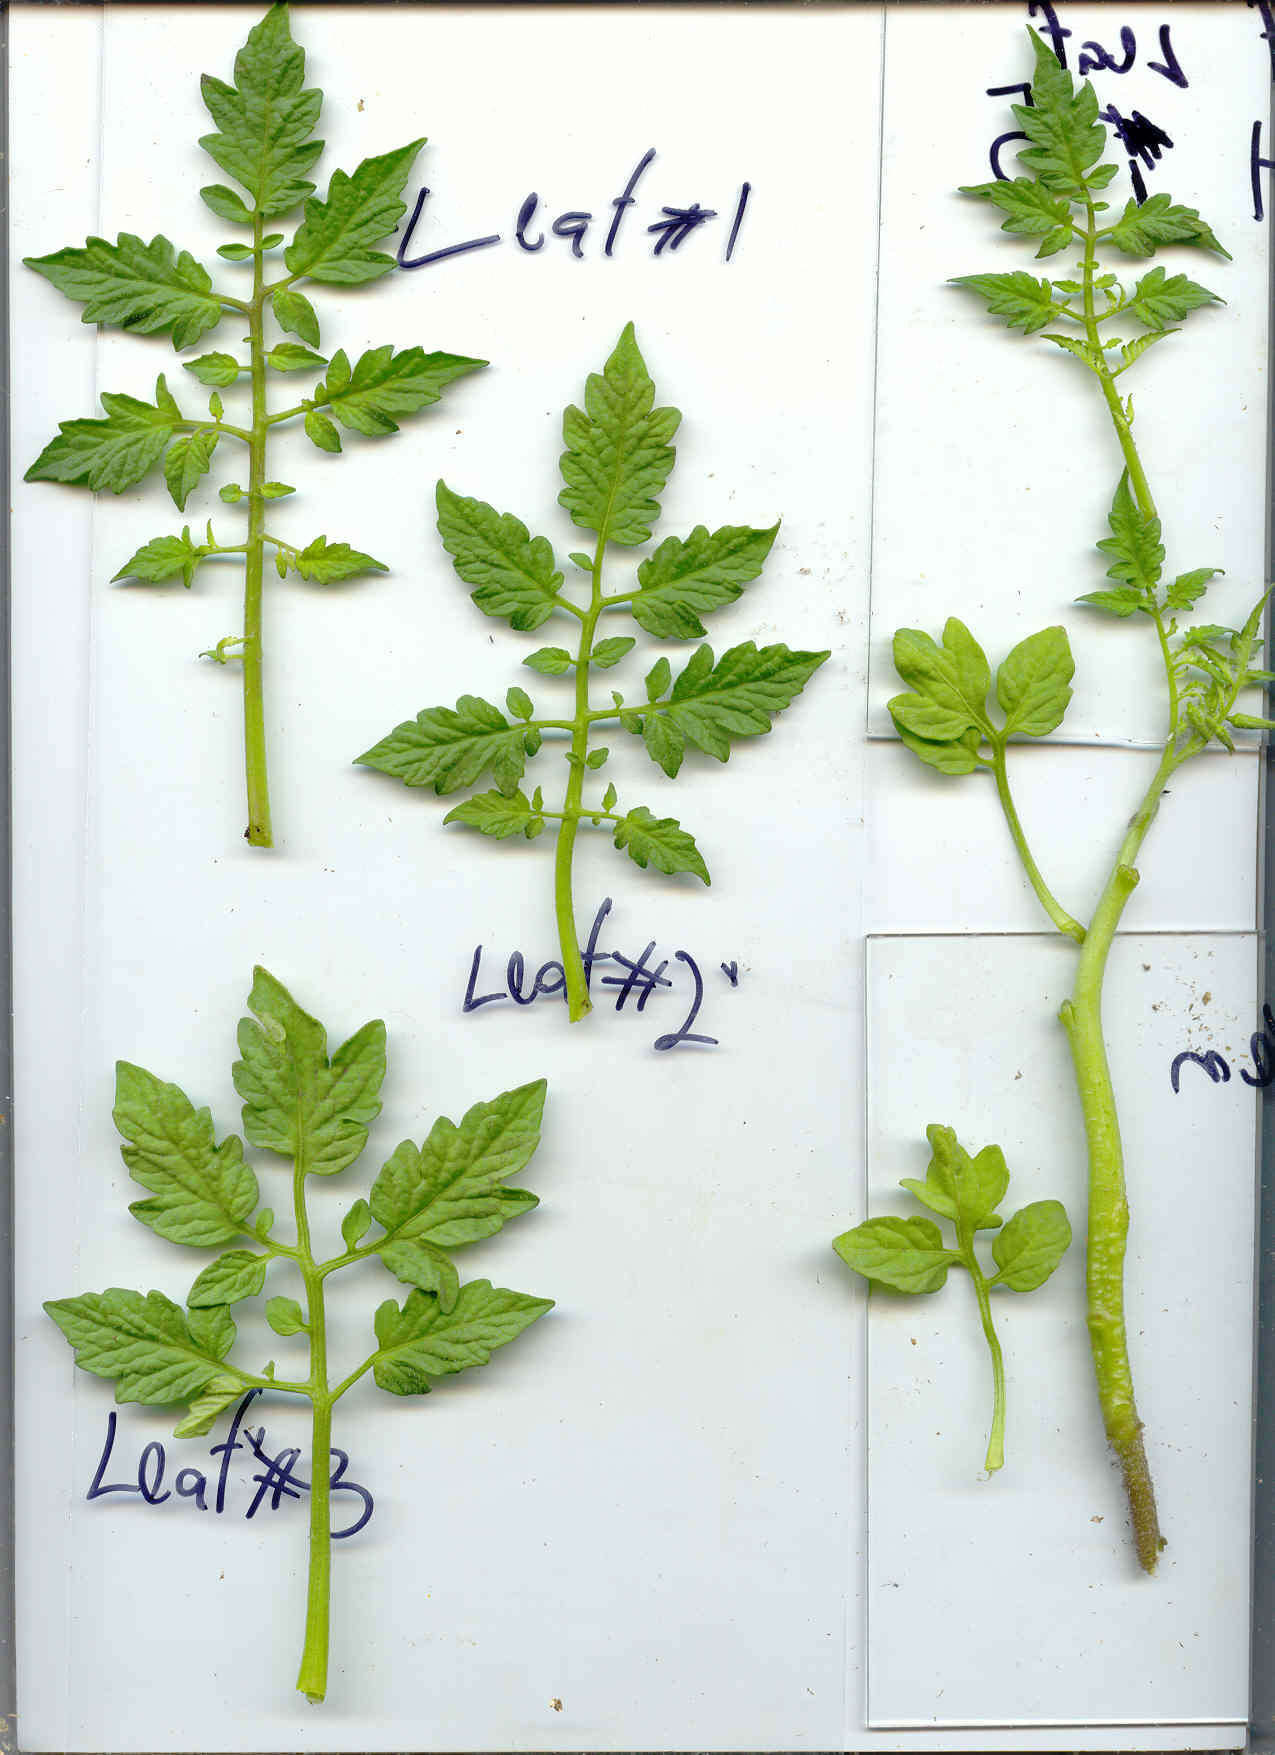 Leaf #1
Leaf
Leaf #2
Leaf #3